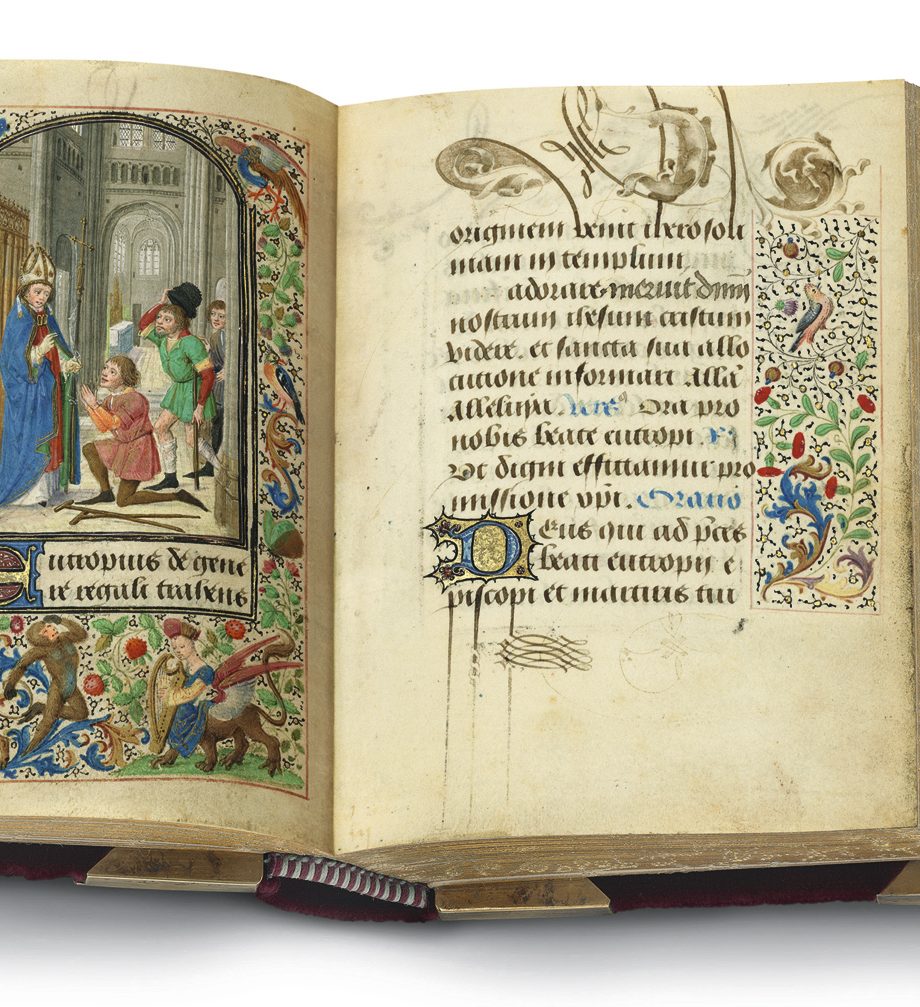 Eutropius de gene
re regali trahens
originem venit iherosoli
mam in templum
adorare meruit dnm
nostrum ihesum cristum
videre. et sancta sua allo
cutione informari alla
alleluya. Vers9 Ora pro
nobis beate eutropi R
Vt digni efficiamur pro
missione xpi. Oratio
Deus qui ad pces
beati eutropij e
piscopi et martiris tui